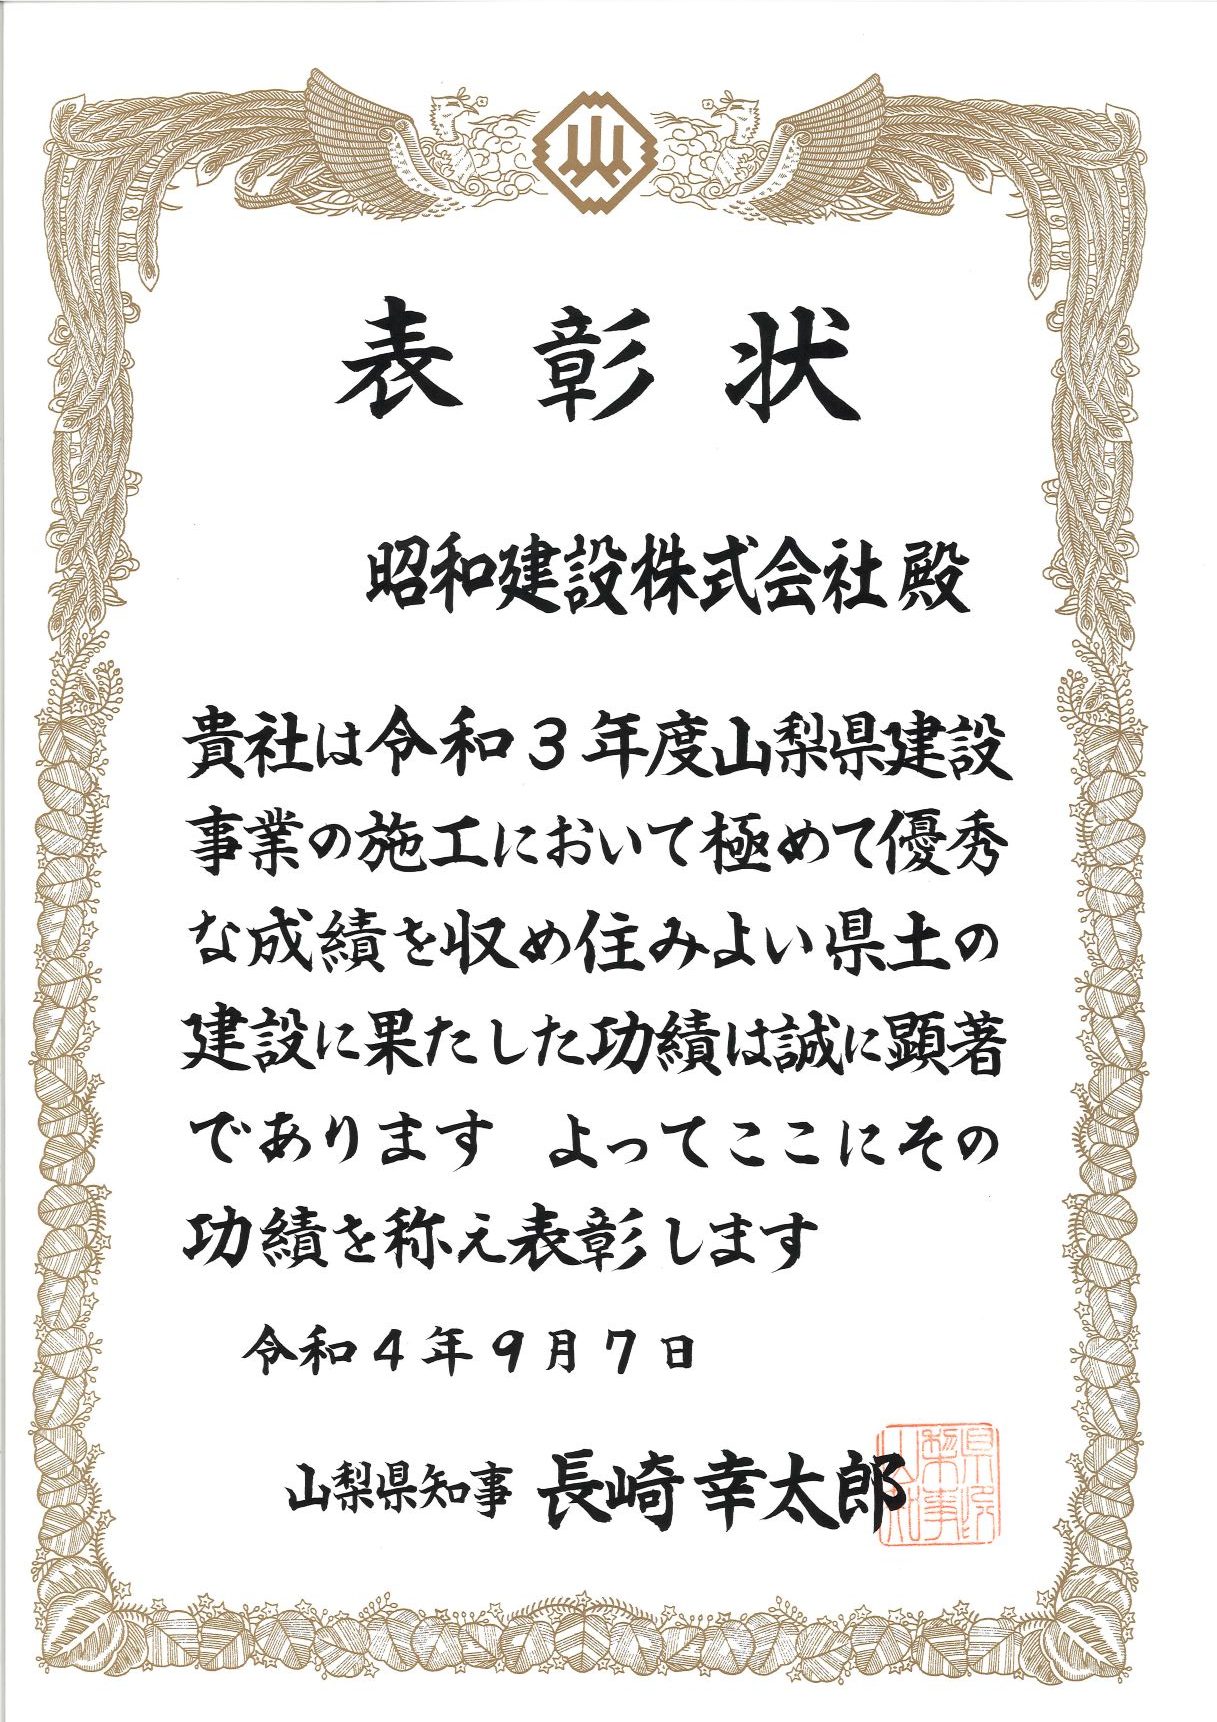 表彰状
昭和建設株式会社殿
貴社は令和3年度山梨県建設
事業の施工において極めて優秀
な成績を収め住みよい県土の
建設に果たした功績は誠に顕著
であります　よってここにその
功績を称え表彰します
令和4年9月7日
山梨県知事 長崎幸太郎